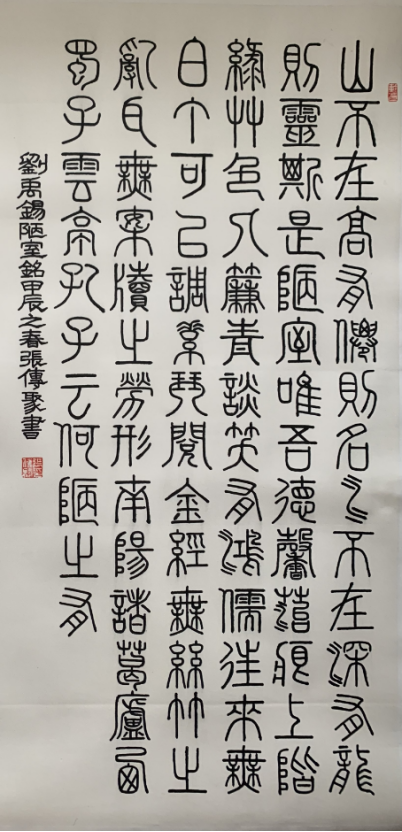 山不在高有僊則名水不在深有龍
則靈斯是陋室唯吾德馨苔痕上階
綠艸色入簾青談笑有鴻儒往來無
白丁可以調素琴閱金經無絲竹之
亂耳無案牘之勞形南陽諸葛廬西
蜀子雲亭孔子云何陋之有
劉禹錫陋室銘甲辰之春張傳聚書